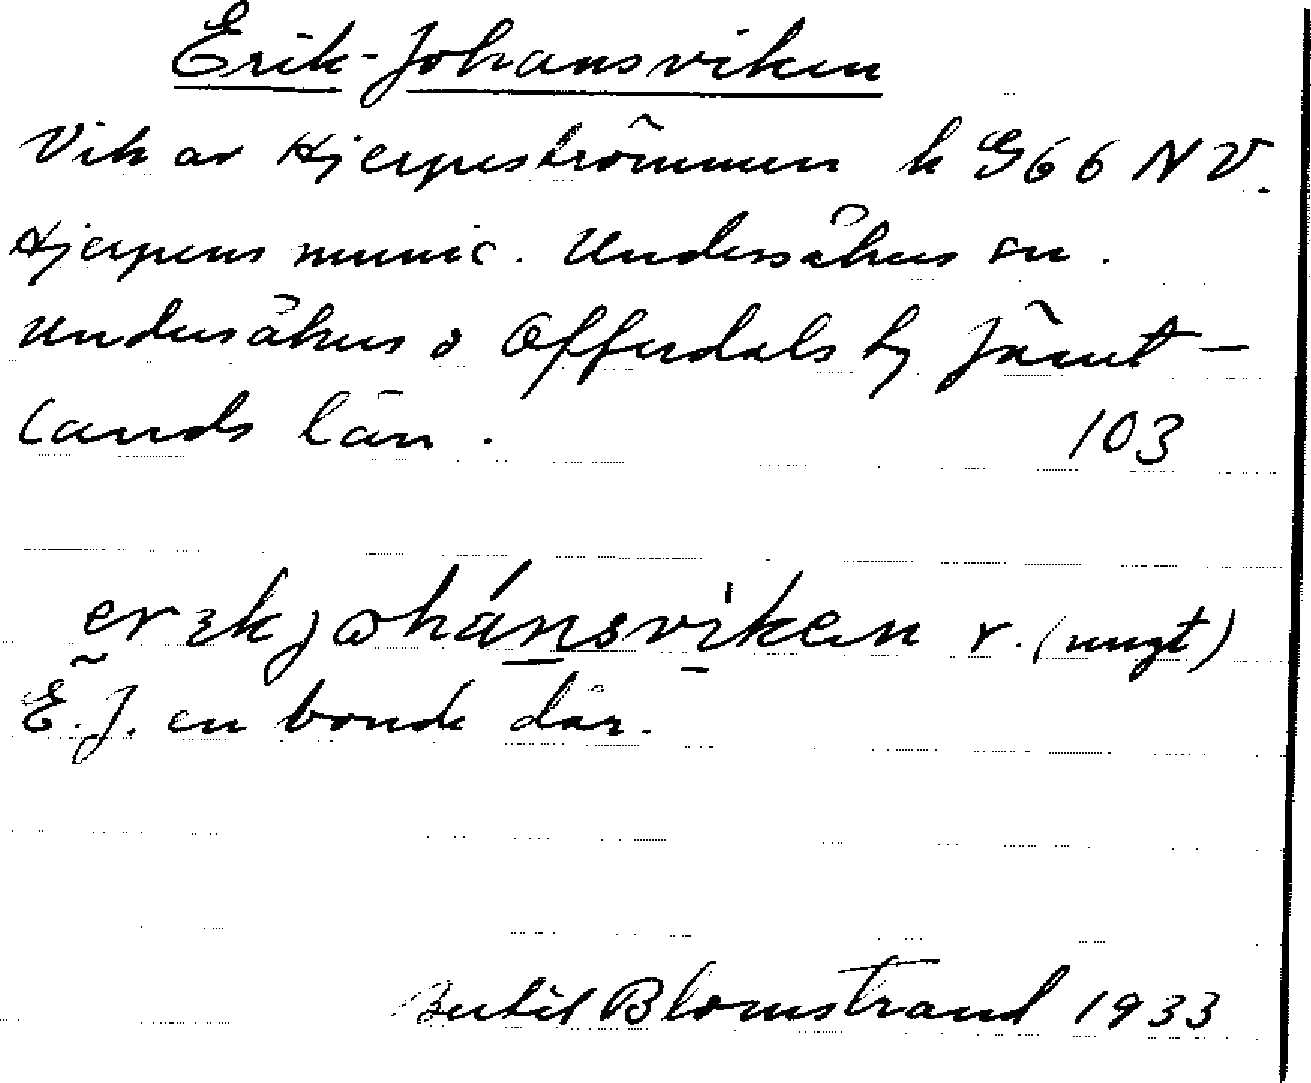 Erik-Johansviken
Vik av Hjerpeströmmen k G66 NV.
Hjerpens munic. Undersåkers sn.
Undersåkers o Offerdals hg Jämt-
lands län. 103
erɩkjohánsvìken r. (nugt)
E.J. en bonde där.
Bertil Blomstrand 1933